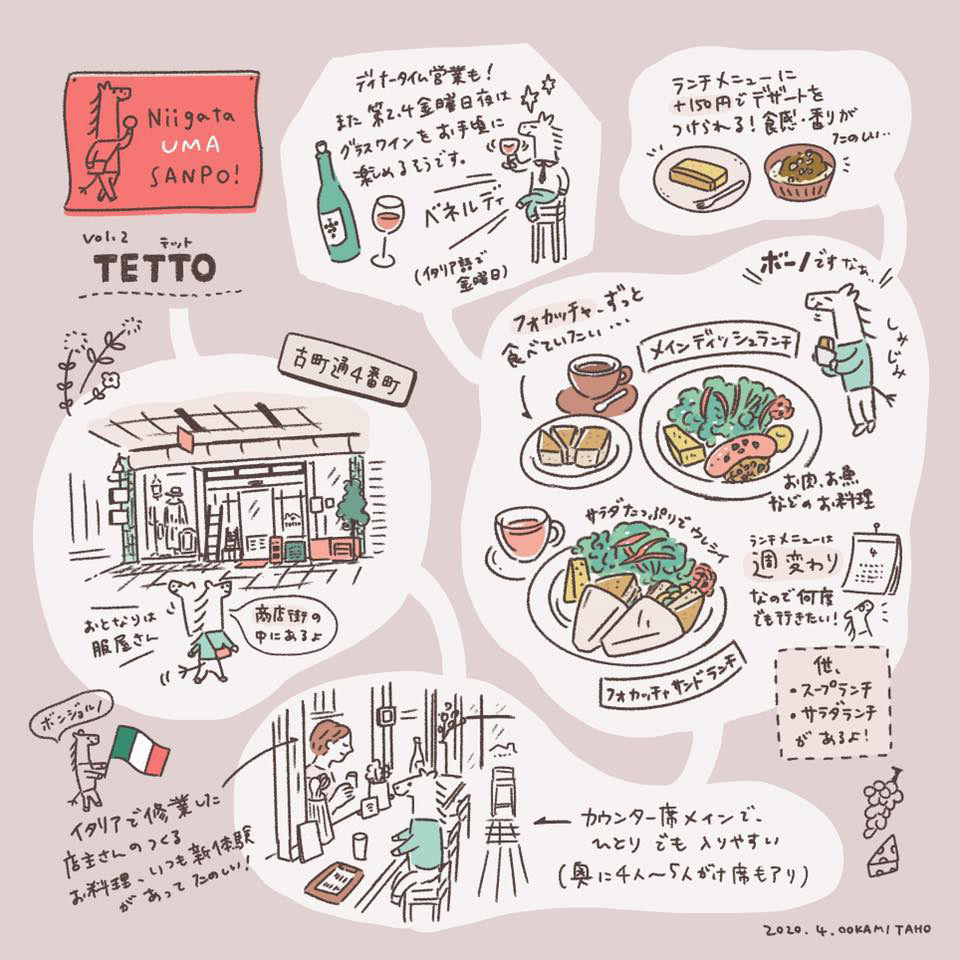 Niigata
UMA
SANPO!
vol.2
テット
TETTO
ディナータイム営業も!
また 第2.4 金曜日夜は
グラスワインを お手頃に
楽しめるそうです。
ベネルディ
(イタリア語で
金曜日)
ランチメニューに
+150円で デザートを
つけられる! 食感・香りが
たのしい…
ボーノですなぁ…
しみじみ
フォカッチャ、ずっと
食べていたい…
メインディッシュランチ
お肉、お魚
などの お料理
サラダたっぷりで ウレシイ
フォカッチャサンドランチ
ランチメニューは
週変わり
なので何度
でも行きたい!
4
他、
・スープランチ
・サラダランチ
が あるよ!
古町通4番町
TETTO
おとなりは
服屋さん
商店街の
中にあるよ
ボンジョルノ
イタリアで修業した
店主さんのつくる
お料理、いつも新体験
があって たのしい!
← カウンター席メインで、
ひとり でも 入りやすい
(奥に4人〜5人がけ席もアリ)
2020.4.OOKAMI TAHO